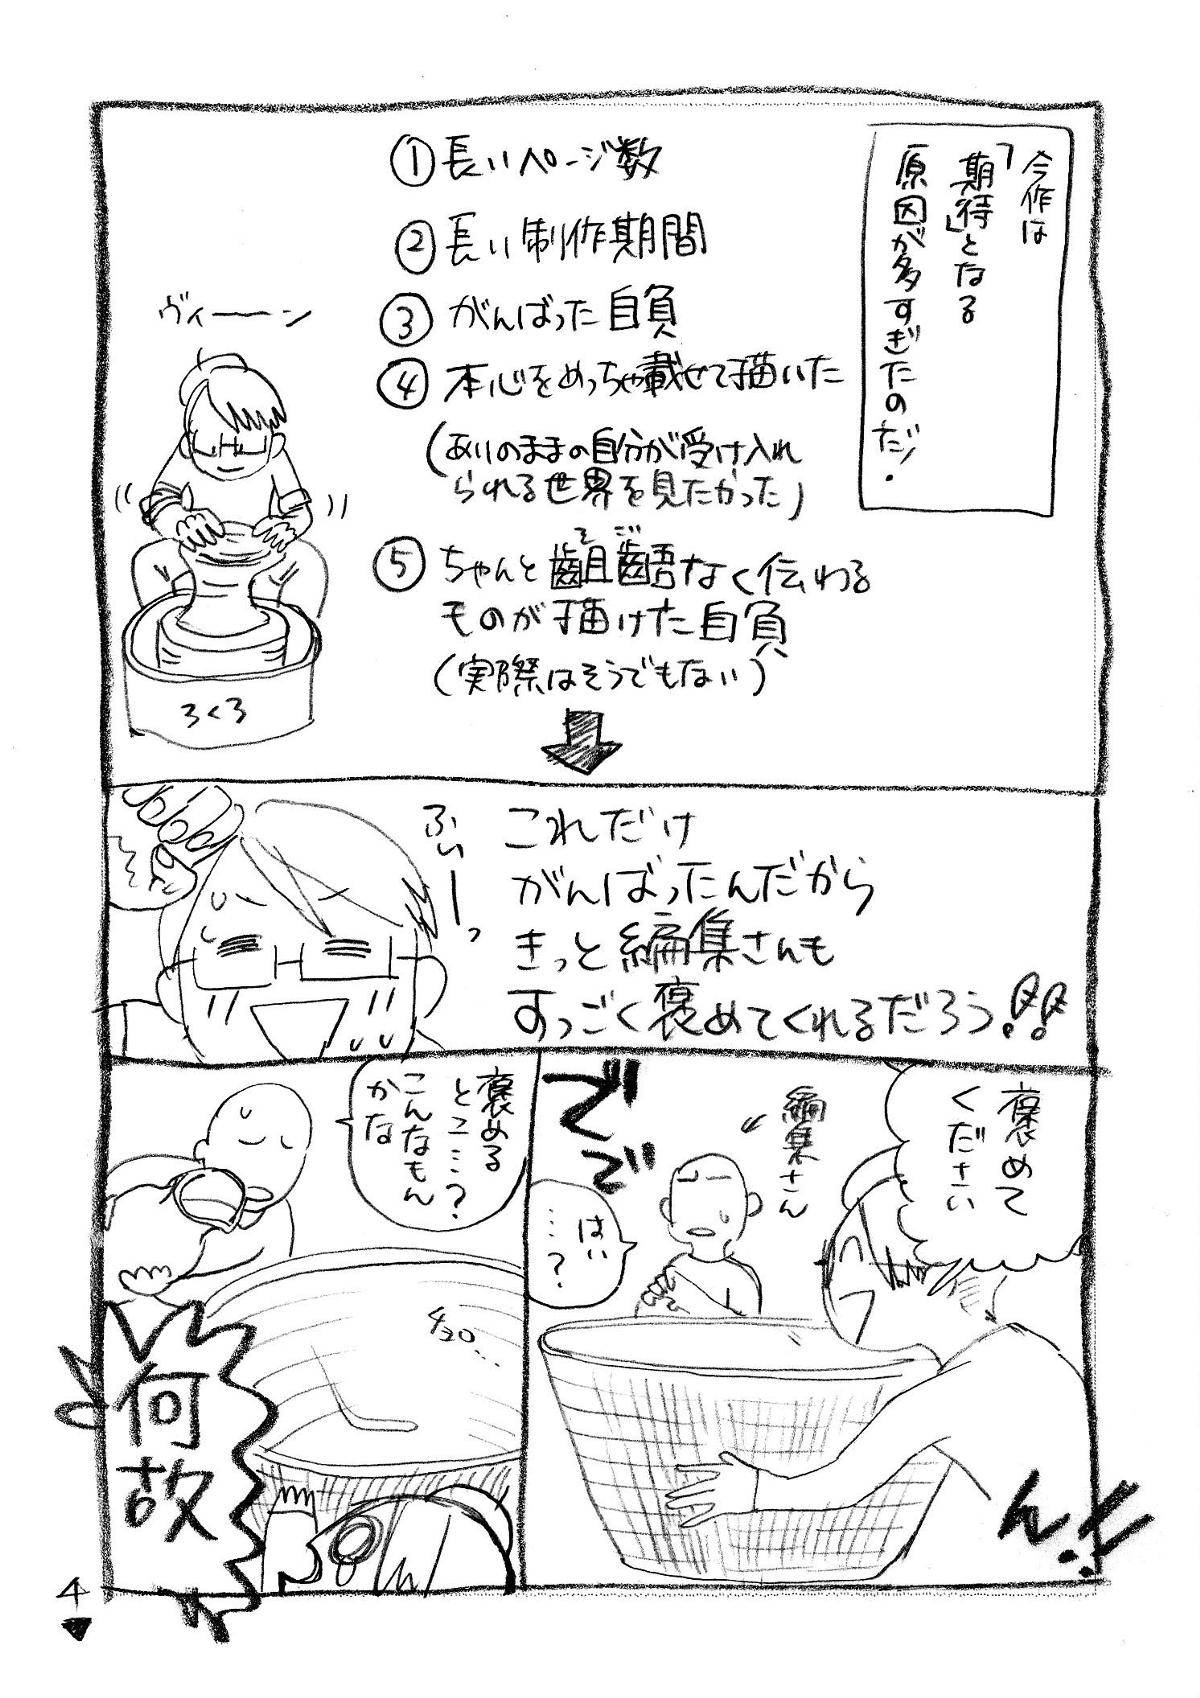 今作は
「期待」となる
原因が多すぎたのだ！
①長いページ数
②長い制作期間
③がんばった自負
④本心をめっちゃ載せて描いた
(ありのままの自分が受け入れ
られる世界を見たかった)
⑤ちゃんと齟齬なく伝わる
そご
ものが描けた自負
(実際はそうでもない)
ヴィーーン
ろくろ
これだけ
がんばったんだから
きっと編集さんも
すっごく褒めてくれるだろう!!
ふぃーっ
褒めて
ください
編集さん
はい
…?
でで
ん!
褒める
とこ…?
こんなもん
かな
何故
4